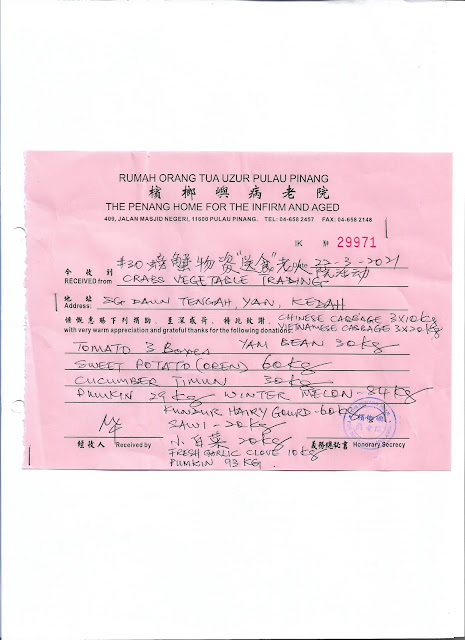 RUMAH ORANG TUA UZUR PULAU PINANG
檳榔嶼病老院
THE PENANG HOME FOR THE INFIRM AND AGED
409, JALAN MASJID NEGERI, 11600 PULAU PINANG. TEL: 04-658 2457 FAX: 04-658 2148
IK 29971
#30 螃蟹物资"送食"老人院活动 22-3-2021
今收到
RECEIVED from CRABS VEGETABLE TRADING
地址
Address: SG DAUN TENGAH, YAN, KEDAH
CHINESE CABBAGE 3X10kg
with very warm appreciation and grateful thanks for the following donations: VIETNAMESE CABBAGE 3X20kg
TOMATO 3 Boxes YAM BEAN 30kg
SWEET POTATO (OREN) 60kg
CUCUMBER TIMUN 30kg
PUMKIN 29kg WINTER MELON - 84kg
KUNDUR HAIRY GOURD - 60kg
SAWI - 20kg
经收人 Received by 小白菜 20kg 義務總秘書 Honorary Secrecy
FRESH GARLIC CLOVE 10kg
PUMKIN 93 KG.